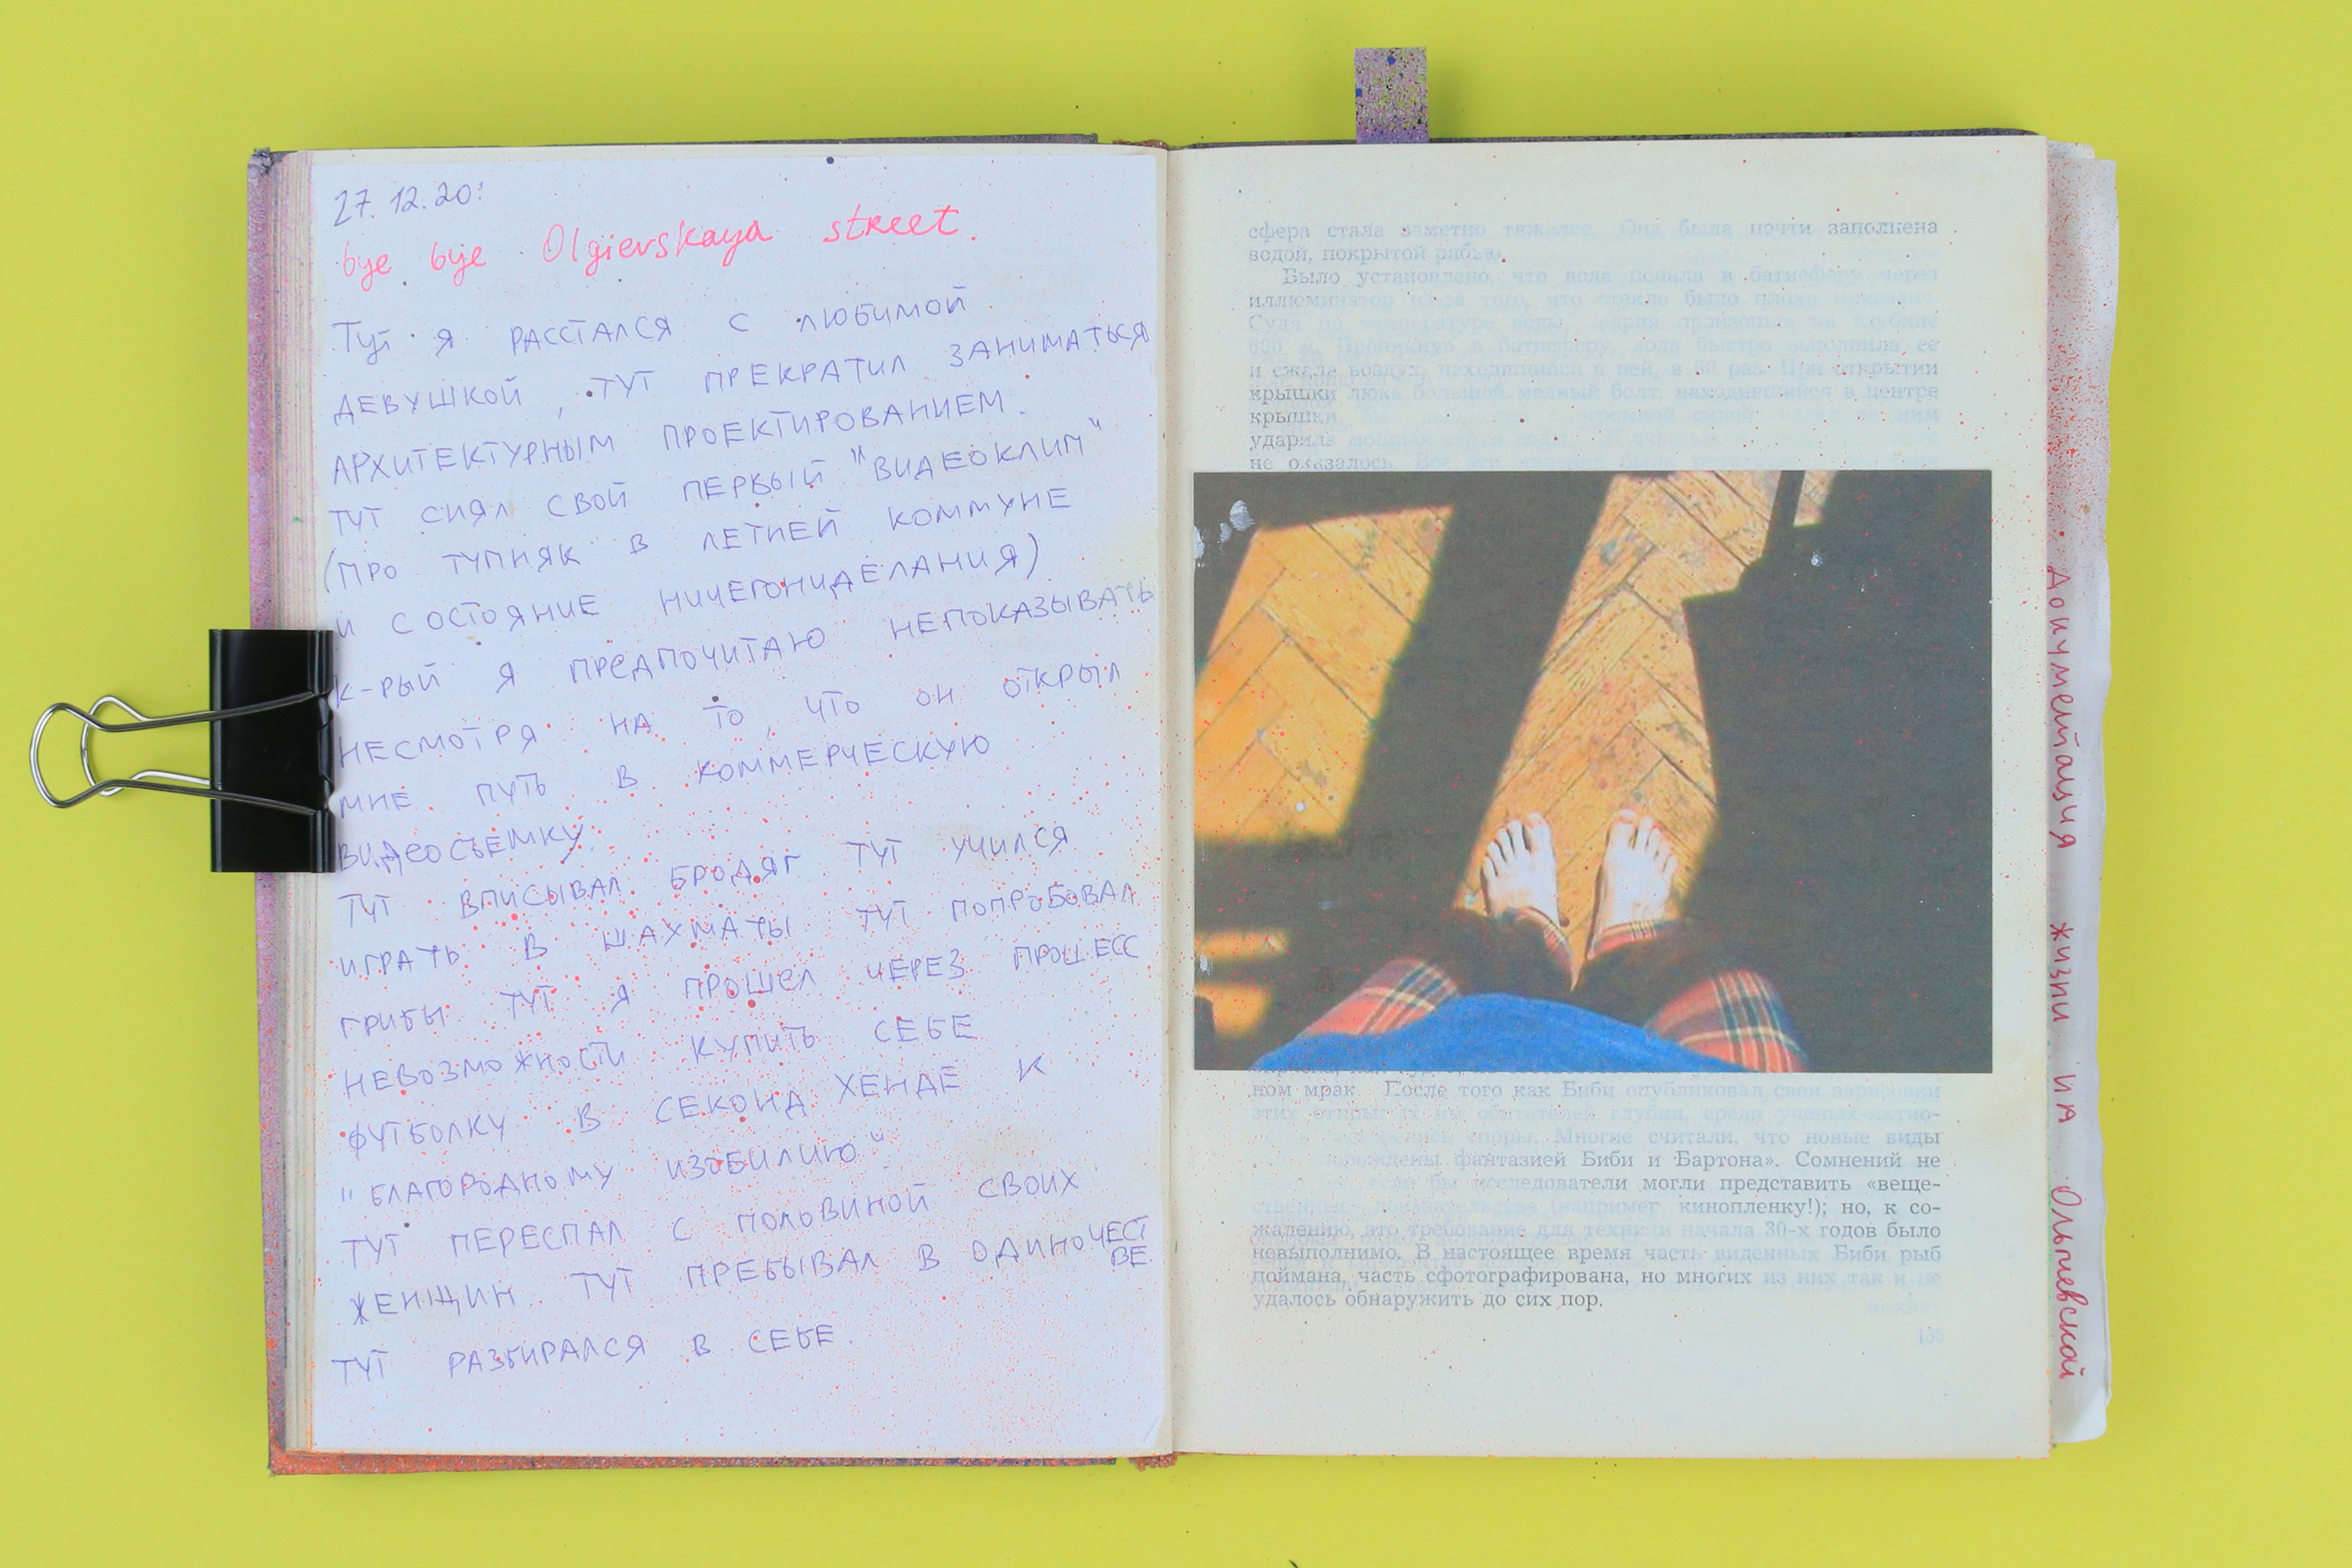 27.12.20:
bye bye Olgievskaya street.
Тут я расстался с любимой
девушкой, тут прекратил заниматься
архитектурным проектированием.
тут снял свой первый "видеоклип"
(про тупняк в летней коммуне
и состояние ничегониделания)
к-рый я предпочитаю непоказывать
несмотря на то, что он открыл
мне путь в коммерческую
видеосъемку.
Тут вписывал бродяг тут учился
играть в шахматы тут попробовал
грибы тут я прошел через процесс
невозможности купить себе
футболку в секонд хенде к
"благородному изобилию".
тут переспал с половиной своих
женщин. тут пребывал в одиночест
ве.
тут разбирался в себе.
сфера стала заметно тяжелее. Она была почти заполнена
водой, покрытой рябью.
Было установлено, что вода попала в батисферу через
иллюминатор из-за того, что стекло было плохо
Судя по температуре воды, авария произошла на глубине
600 м. Проникнув в батисферу, вода быстро заполнила ее
и сжала воздух, находящийся в ней, в 60 раз. При открытии
крышки люка большой медный болт, находившийся в центре
крышки, огромной ним
ударила мощная струя воды.
не оказалось.
ном мрак. После того как Биби опубликовал свои зарисовки
этих обитателей глубин, среди ученых-ихтио-
споры. Многие считали, что новые виды
порождены фантазией Биби и Бартона». Сомнений не
если бы исследователи могли представить «веще-
ственные» доказательства (например кинопленку!); но, к со-
жалению, это требование для техники начала 30-х годов было
невыполнимо. В настоящее время часть виденных Биби рыб
поймана, часть сфотографирована, но многих из них так и не
удалось обнаружить до сих пор.
документация жизни на Ольгиевской